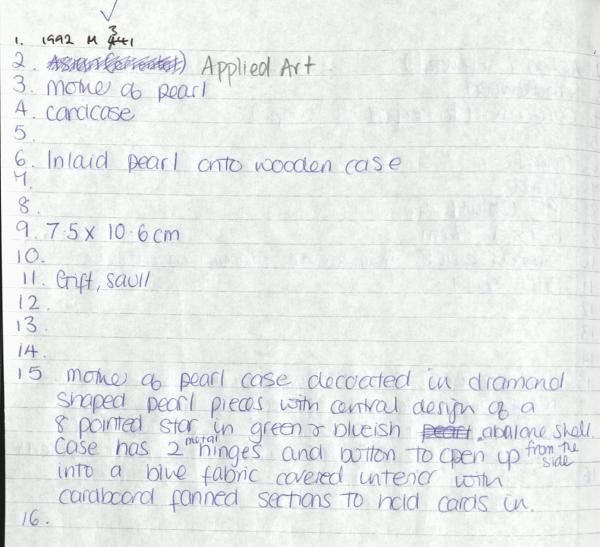 1. 1992 M 341
2. Applied Art
3. mother of pearl
4. cardcase
5.
6. Inlaid pearl onto wooden case
7.
8.
9. 7.5 x 10.6cm
10.
11. Gift, Savill
12.
13.
14.
15 mother of pearl case decorated in diamond
shaped pearl pieces with central design of a
8 pointed star in green & blueish abalone shell.
Case has 2 metal hinges and button to open up from the side
into a blue fabric covered interior with
cardboard fanned sections to hold cards in.
16.